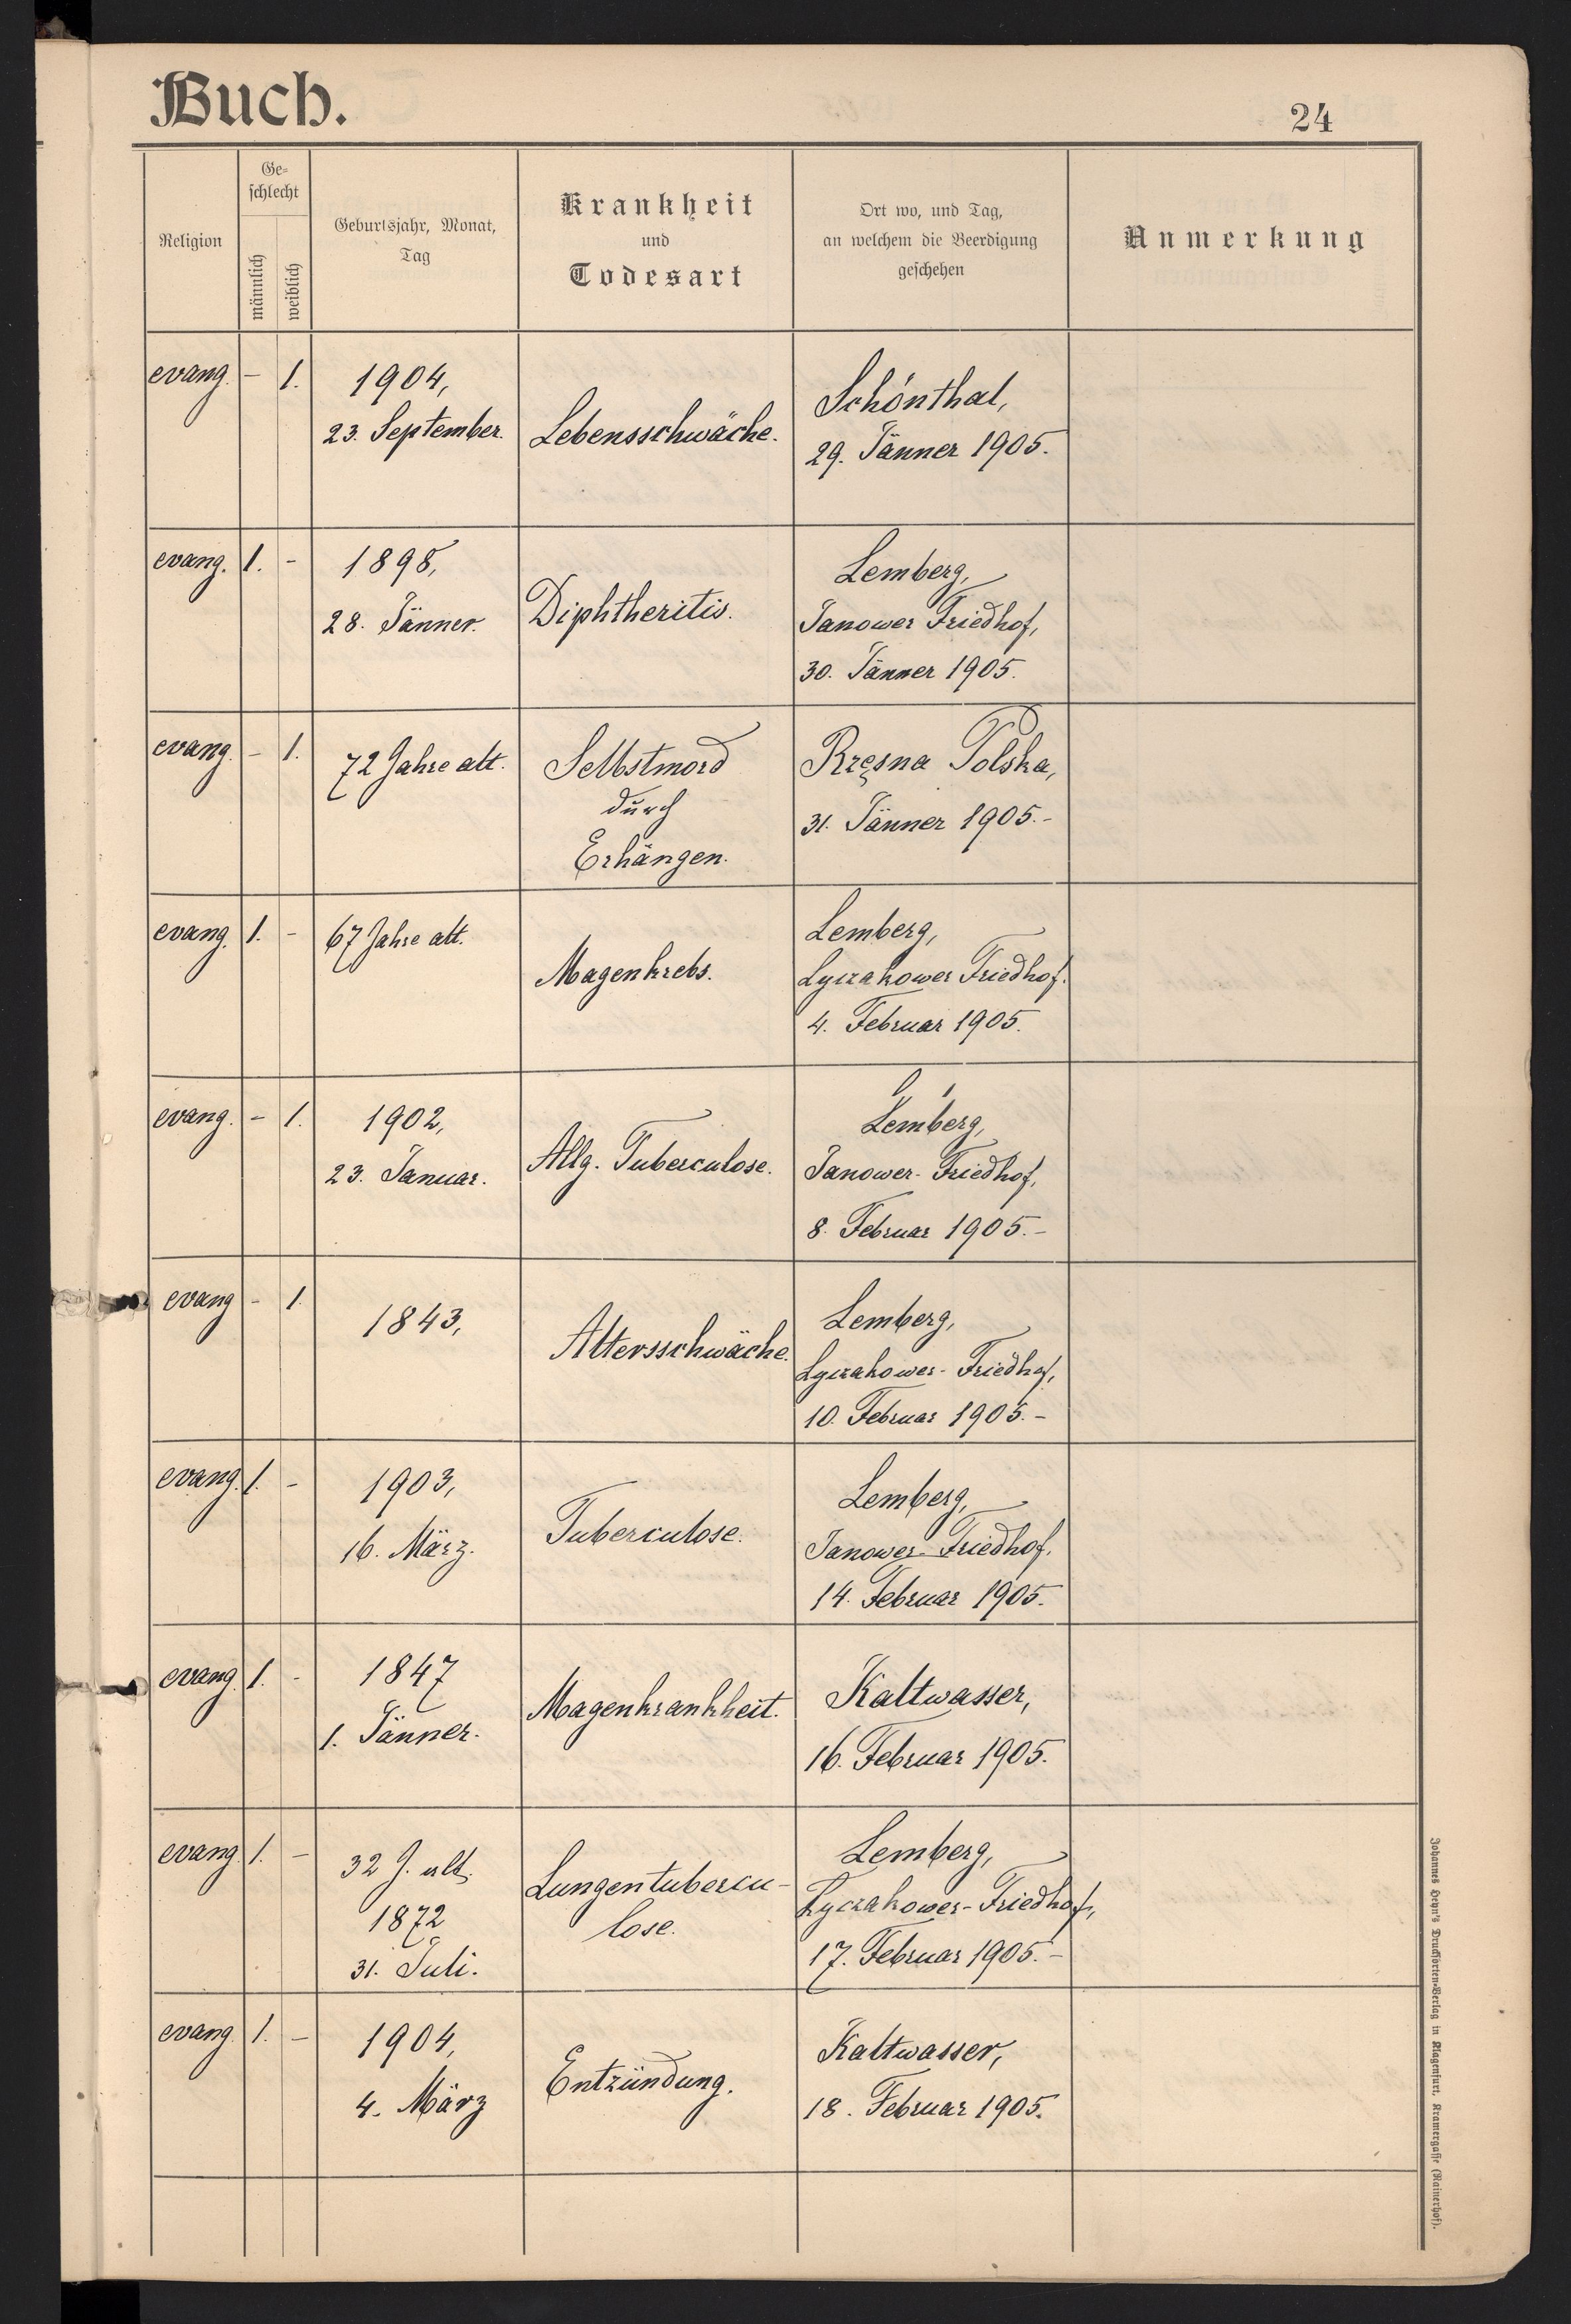 Buch.
24
Religion
Ge=
schlecht
männlich
weiblich
Geburtsjahr, Monat,
Tag
Krankheit
und
Todesart
Ort wo, und Tag,
an welchem die Beerdigung
geschehen
Anmerkung
evang. - 1.
1904,
23. September.
Lebensschwäche.
Schönthal,
29. Jänner 1905.
evang. 1. -
1898,
28. Jänner.
Diphtheritis.
Lemberg,
Janower Friedhof,
30. Jänner 1905.
evang. - 1.
72 Jahre alt.
Selbstmord
durch
Erhängen.
Rzęsna Polska,
31. Jänner 1905.-
evang. 1. -
67 Jahre alt.
Magenkrebs.
Lemberg,
Lyczakower Friedhof.
4. Februar 1905.
evang. - 1.
1902,
23. Januar.
Allg. Tuberculose.
Lemberg,
Janower-Friedhof,
8. Februar 1905.-
evang - 1.
1843,
Altersschwäche.
Lemberg,
Lyczakower-Friedhof,
10. Februar 1905.-
evang. 1. -
1903,
16. März.
Tuberculose.
Lemberg,
Janower-Friedhof.
14. Februar 1905.
evang. 1. -
1847
1. Jänner.
Magenkrankheit.
Kaltwasser,
16. Februar 1905.
evang. 1. -
32 J. alt.
1872
31. Juli.
Lungentubercu-
lose.
Lemberg,
Lyczakower-Friedhof,
17. Februar 1905.-
evang. 1. -
1904,
4. März
Entzündung.
Kaltwasser,
18. Februar 1905.
Johannes Heyn's Drucksorten-Verlag in Klagenfurt, Kramergasse (Rainerhof).